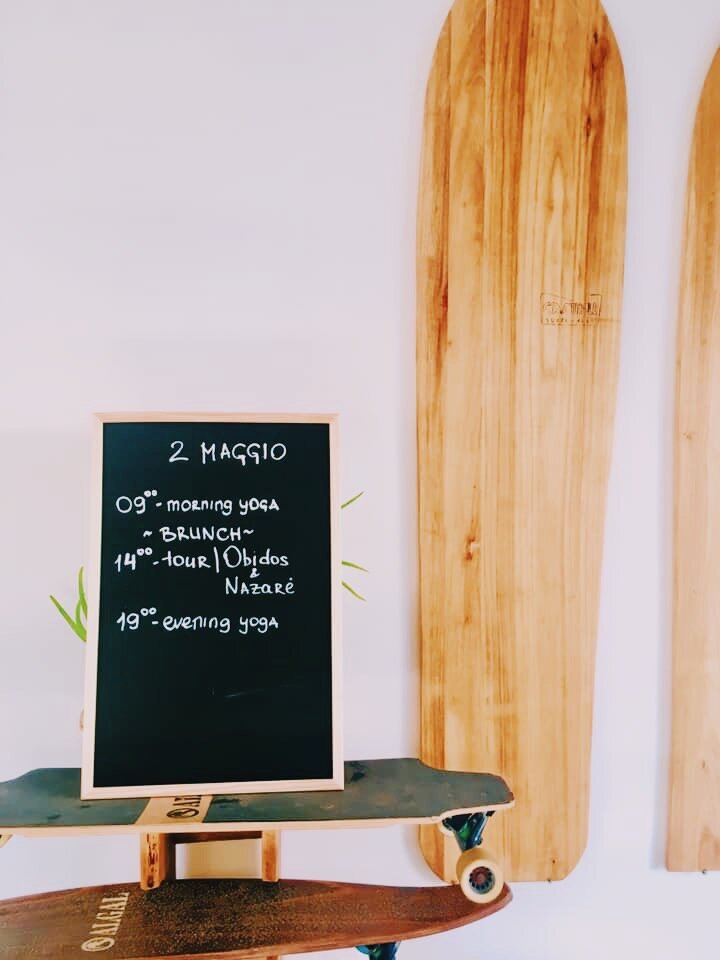 2 MAGGIO
09⁰⁰-morning yoga
~ BRUNCH ~
14⁰⁰-tour | Obidos
&
Nazaré
19⁰⁰-evening yoga
ALGAL